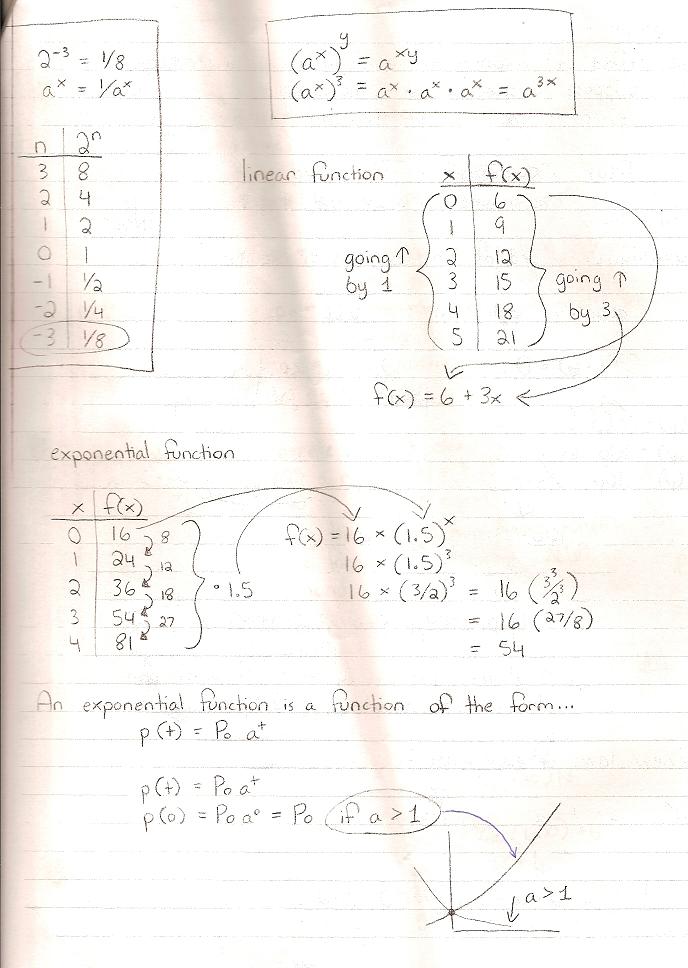 2⁻³ = 1/8
aˣ = 1/aˣ
n | 2ⁿ
3 | 8
2 | 4
1 | 2
0 | 1
-1 | 1/2
-2 | 1/4
-3 | 1/8
(aˣ)ʸ = aˣʸ
(aˣ)³ = aˣ · aˣ · aˣ = a³ˣ
linear function
x | f(x)
0 | 6
1 | 9
2 | 12
3 | 15
4 | 18
5 | 21
going ↑
by 1
going ↑
by 3
f(x) = 6 + 3x
exponential function
x | f(x)
0 | 16
1 | 24
2 | 36
3 | 54
4 | 81
8
12
18
27
· 1.5
f(x) = 16 × (1.5)ˣ
16 × (1.5)³
16 × (3/2)³ = 16 (3³/2³)
= 16 (27/8)
= 54
An exponential function is a function of the form...
p(t) = P₀ aᵗ
p(t) = P₀ aᵗ
p(0) = P₀ a⁰ = P₀ if a > 1
a > 1